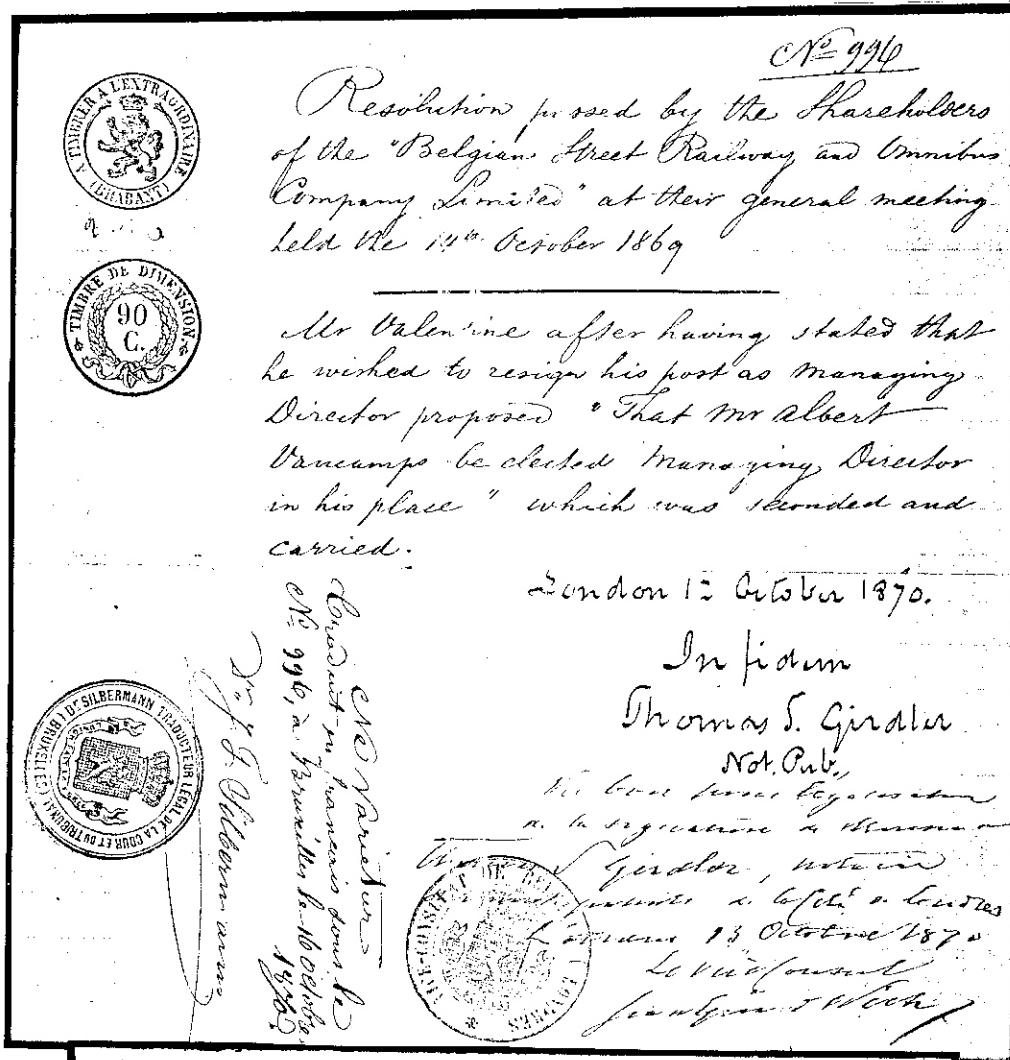 Nº 996
Resolution passed by the Shareholders
of the "Belgian Street Railway and Omnibus
Company Limited" at their general meeting
held the 14th October 1869
Mr Valentine after having stated that
he wished to resign his post as Managing
Director proposed "That Mr Albert
Vancamps be elected Managing Director
in his place" which was seconded and
carried.
London 1 October 1870.
In fidem
Thomas S. Girdler
Not. Pub.
Vu pour légalisation
de la signature de
Thomas S Girdler, notaire
à la Cité de Londres
Londres 13 Octobre 1870
Le Vice Consul
A TIMBRER A L'EXTRAORDINAIRE
(BRABANT)
TIMBRE DE DIMENSION.
90
C.
Ne Varietur
Traduit en français sous le
Nº 996, à Bruxelles le 16 octobre
1870.
Dr J. F. Silbermann
DE SILBERMANN TRADUCTEUR LÉGAL DE LA COUR ET DU TRIBUNAL (BRUXELLES)
N
VICE-CONSULAT DE BELGIQUE A LONDRES